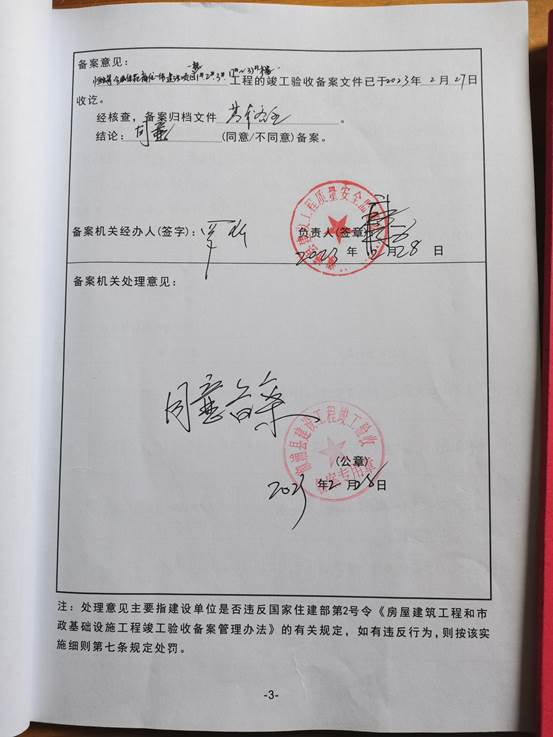 备案意见:
工程的竣工验收备案文件已于2023年2月27日
收讫。
经核查,备案归档文件 齐全。
结论: 同意 (同意/不同意)备案。
备案机关经办人(签字):
负责人(签章)
2023年12月28日
备案机关处理意见:
同意备案
建设工程竣工验收
备案专用章
(公章)
2023年2月28日
注:处理意见主要指建设单位是否违反国家住建部第2号令《房屋建筑工程和市
政基础设施工程竣工验收备案管理办法》的有关规定,如有违反行为,则按该实
施细则第七条规定处罚。
-3-